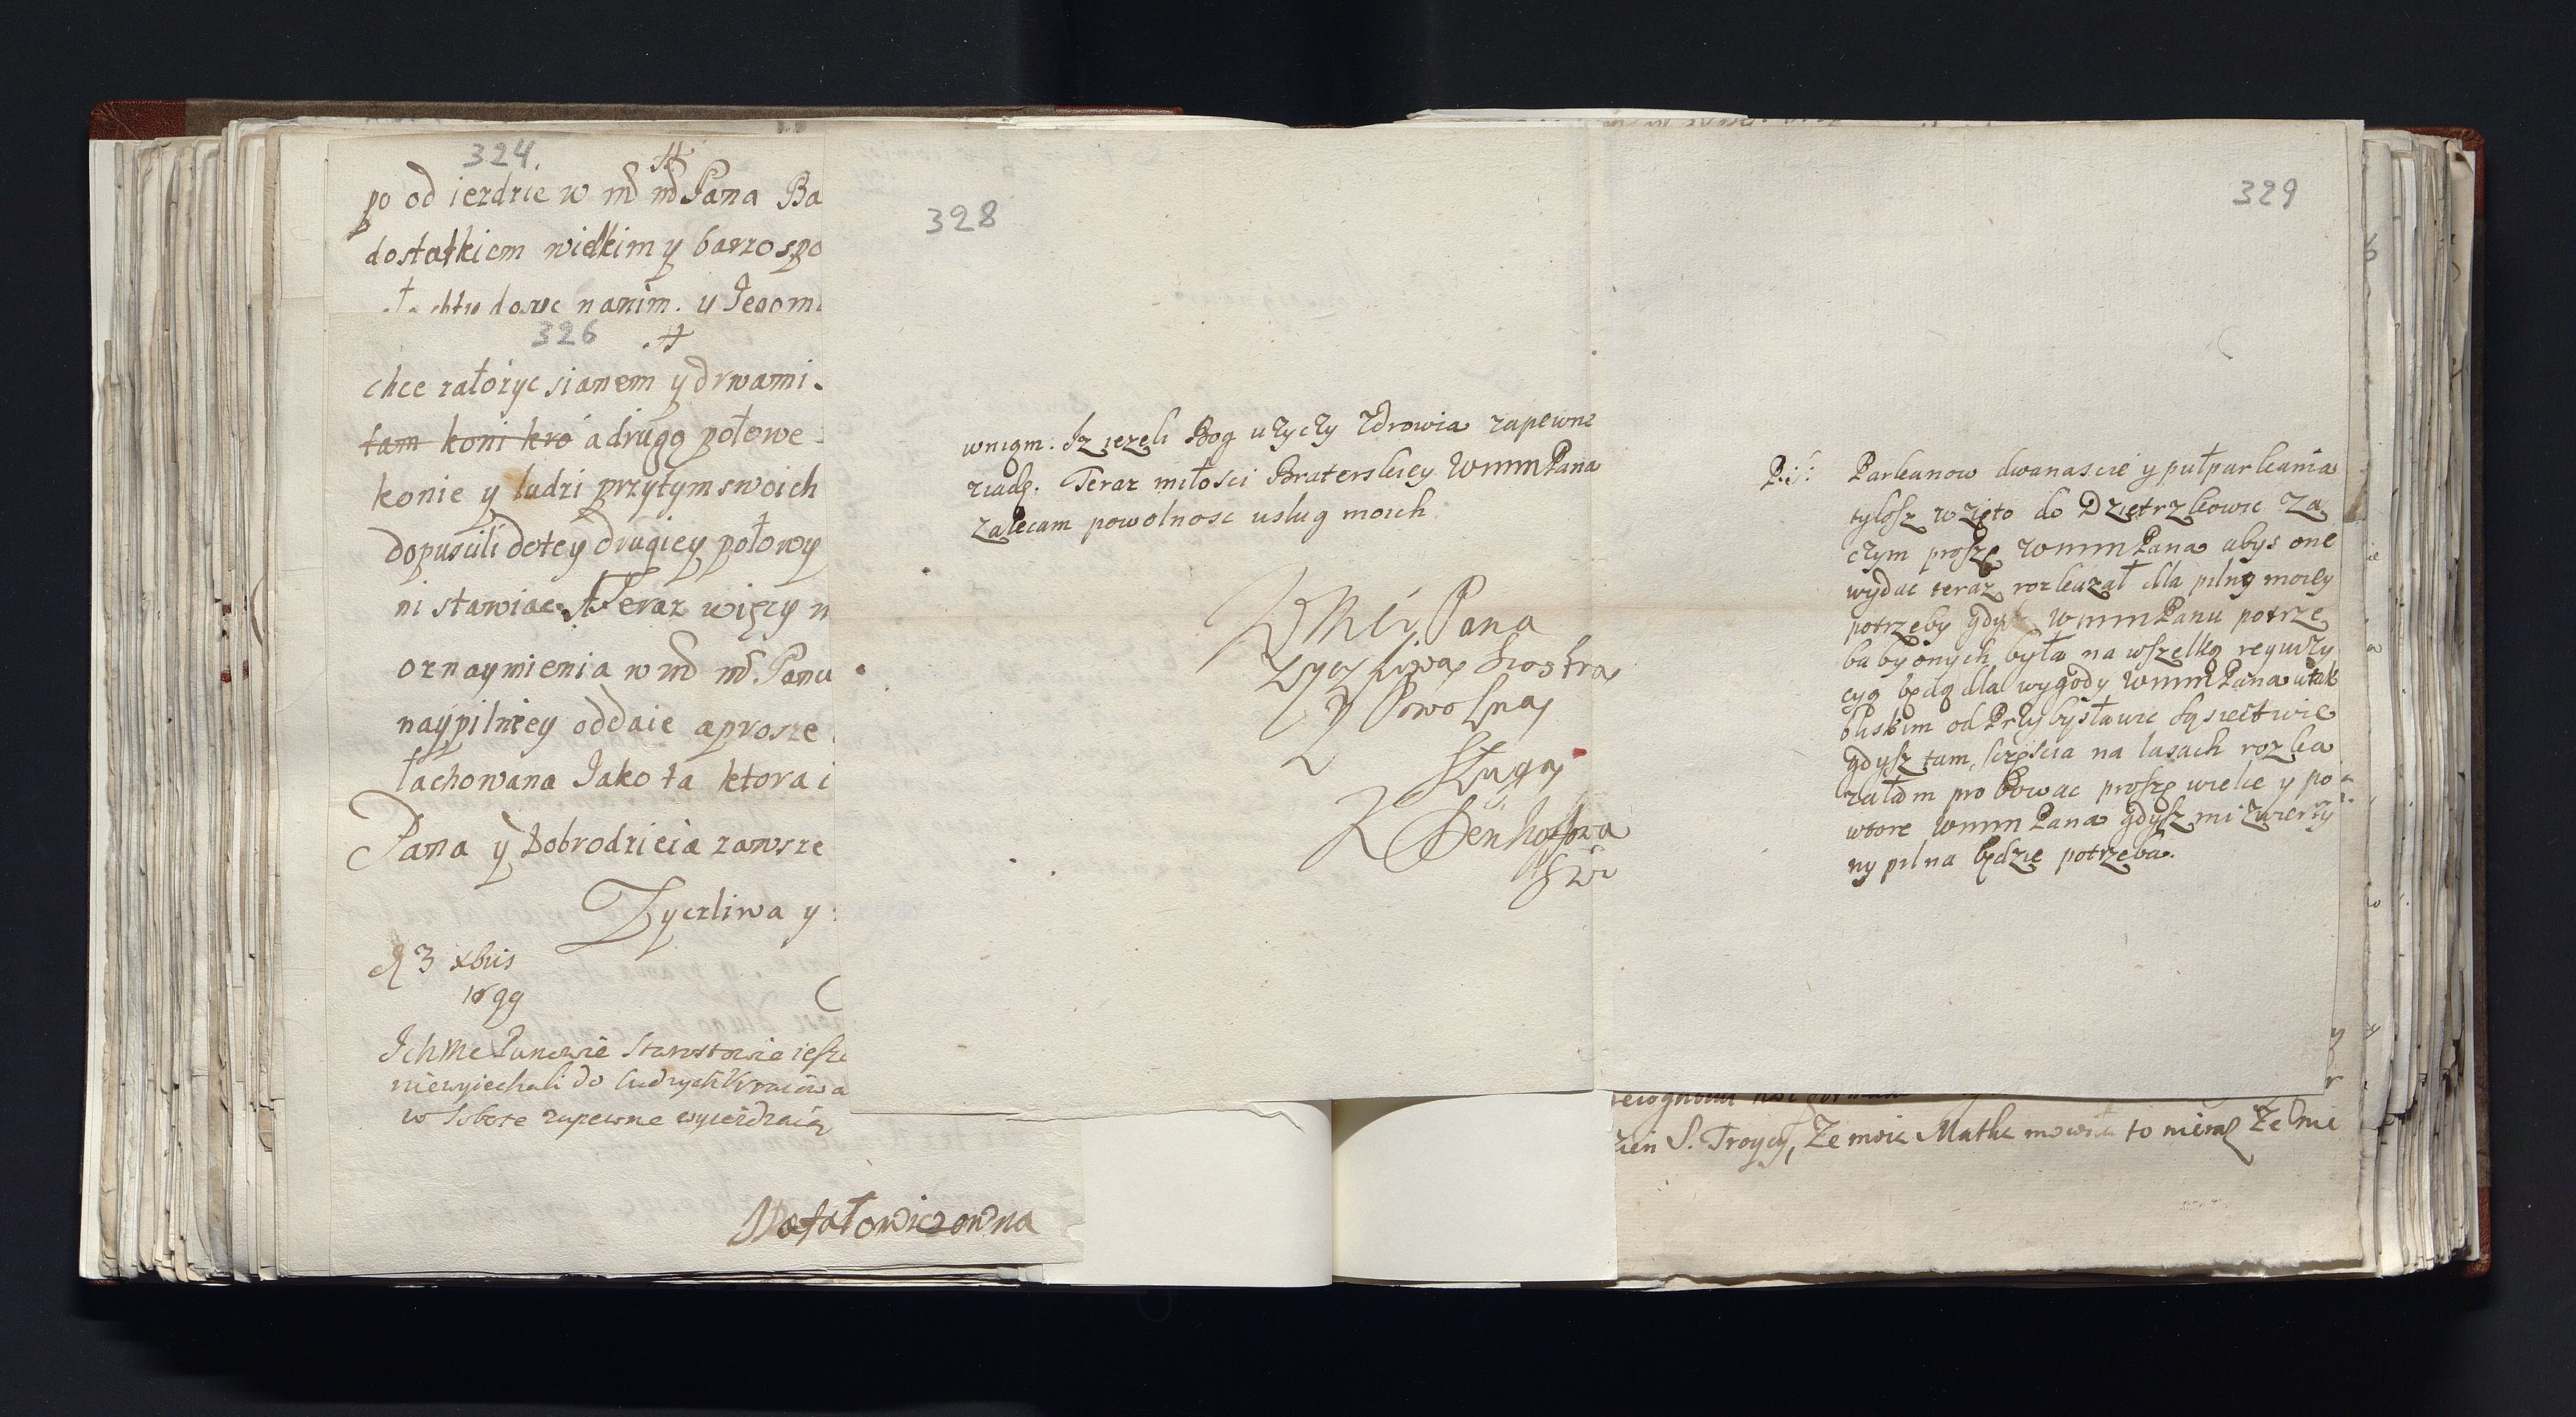 324.
po od iezdzie w md md Pana Ba
dostatkiem wielkim y barzo spo
nanim. y Jegom
326
chce załozyc sianem y drwami.
tam koni kro a drugą połowe
konie y ludzi przytym swoich
dopuscili do tey drugiey połowy
ni stawiac. Teraz więcy n
oznaymienia w md md. Panu
naypilniey oddaie a prosze
łachowana Jako ta ktora i
Pana y Dobrodzieia zawsze
Zyczliwa y
d 3 xbris
1699
Ich Mc Panowie Starostowie iesz
niewyiechali do Cudzych Kraiow a
w Sobote zapewne wyieżdzaią
328
wniąm. Iz iezeli Bog uzyczy zdrowia zapewne
ziadę. Teraz miłosci Braterskiey WmmPana
zalecam powolnosc usług moich
WMci Pana
zyczliwa siostra
y Powolna
Sługa
Denhofowa
329
P:S: Parkanow dwanascie y puł parkania
tylosz wzięto do Dzietrzkowic za
czym proszę WmmPana abys one
wydac teraz rozkazał dla pilny moiey
potrzeby gdysz WmmPanu potrze
ba by onych była na wszelką requizy
cyą będą dla wygody WmmPana w tak
bliskim od Przybysławic sąsiectwie
gdysz tam sczęscia na lasach rozka
załam probowac proszę wielce y po
wtore WmmPana gdysz mi zwierzy
ny pilna będzie potrzeba.
S. Troycy, Ze moia Matka to nimasz Ze mie